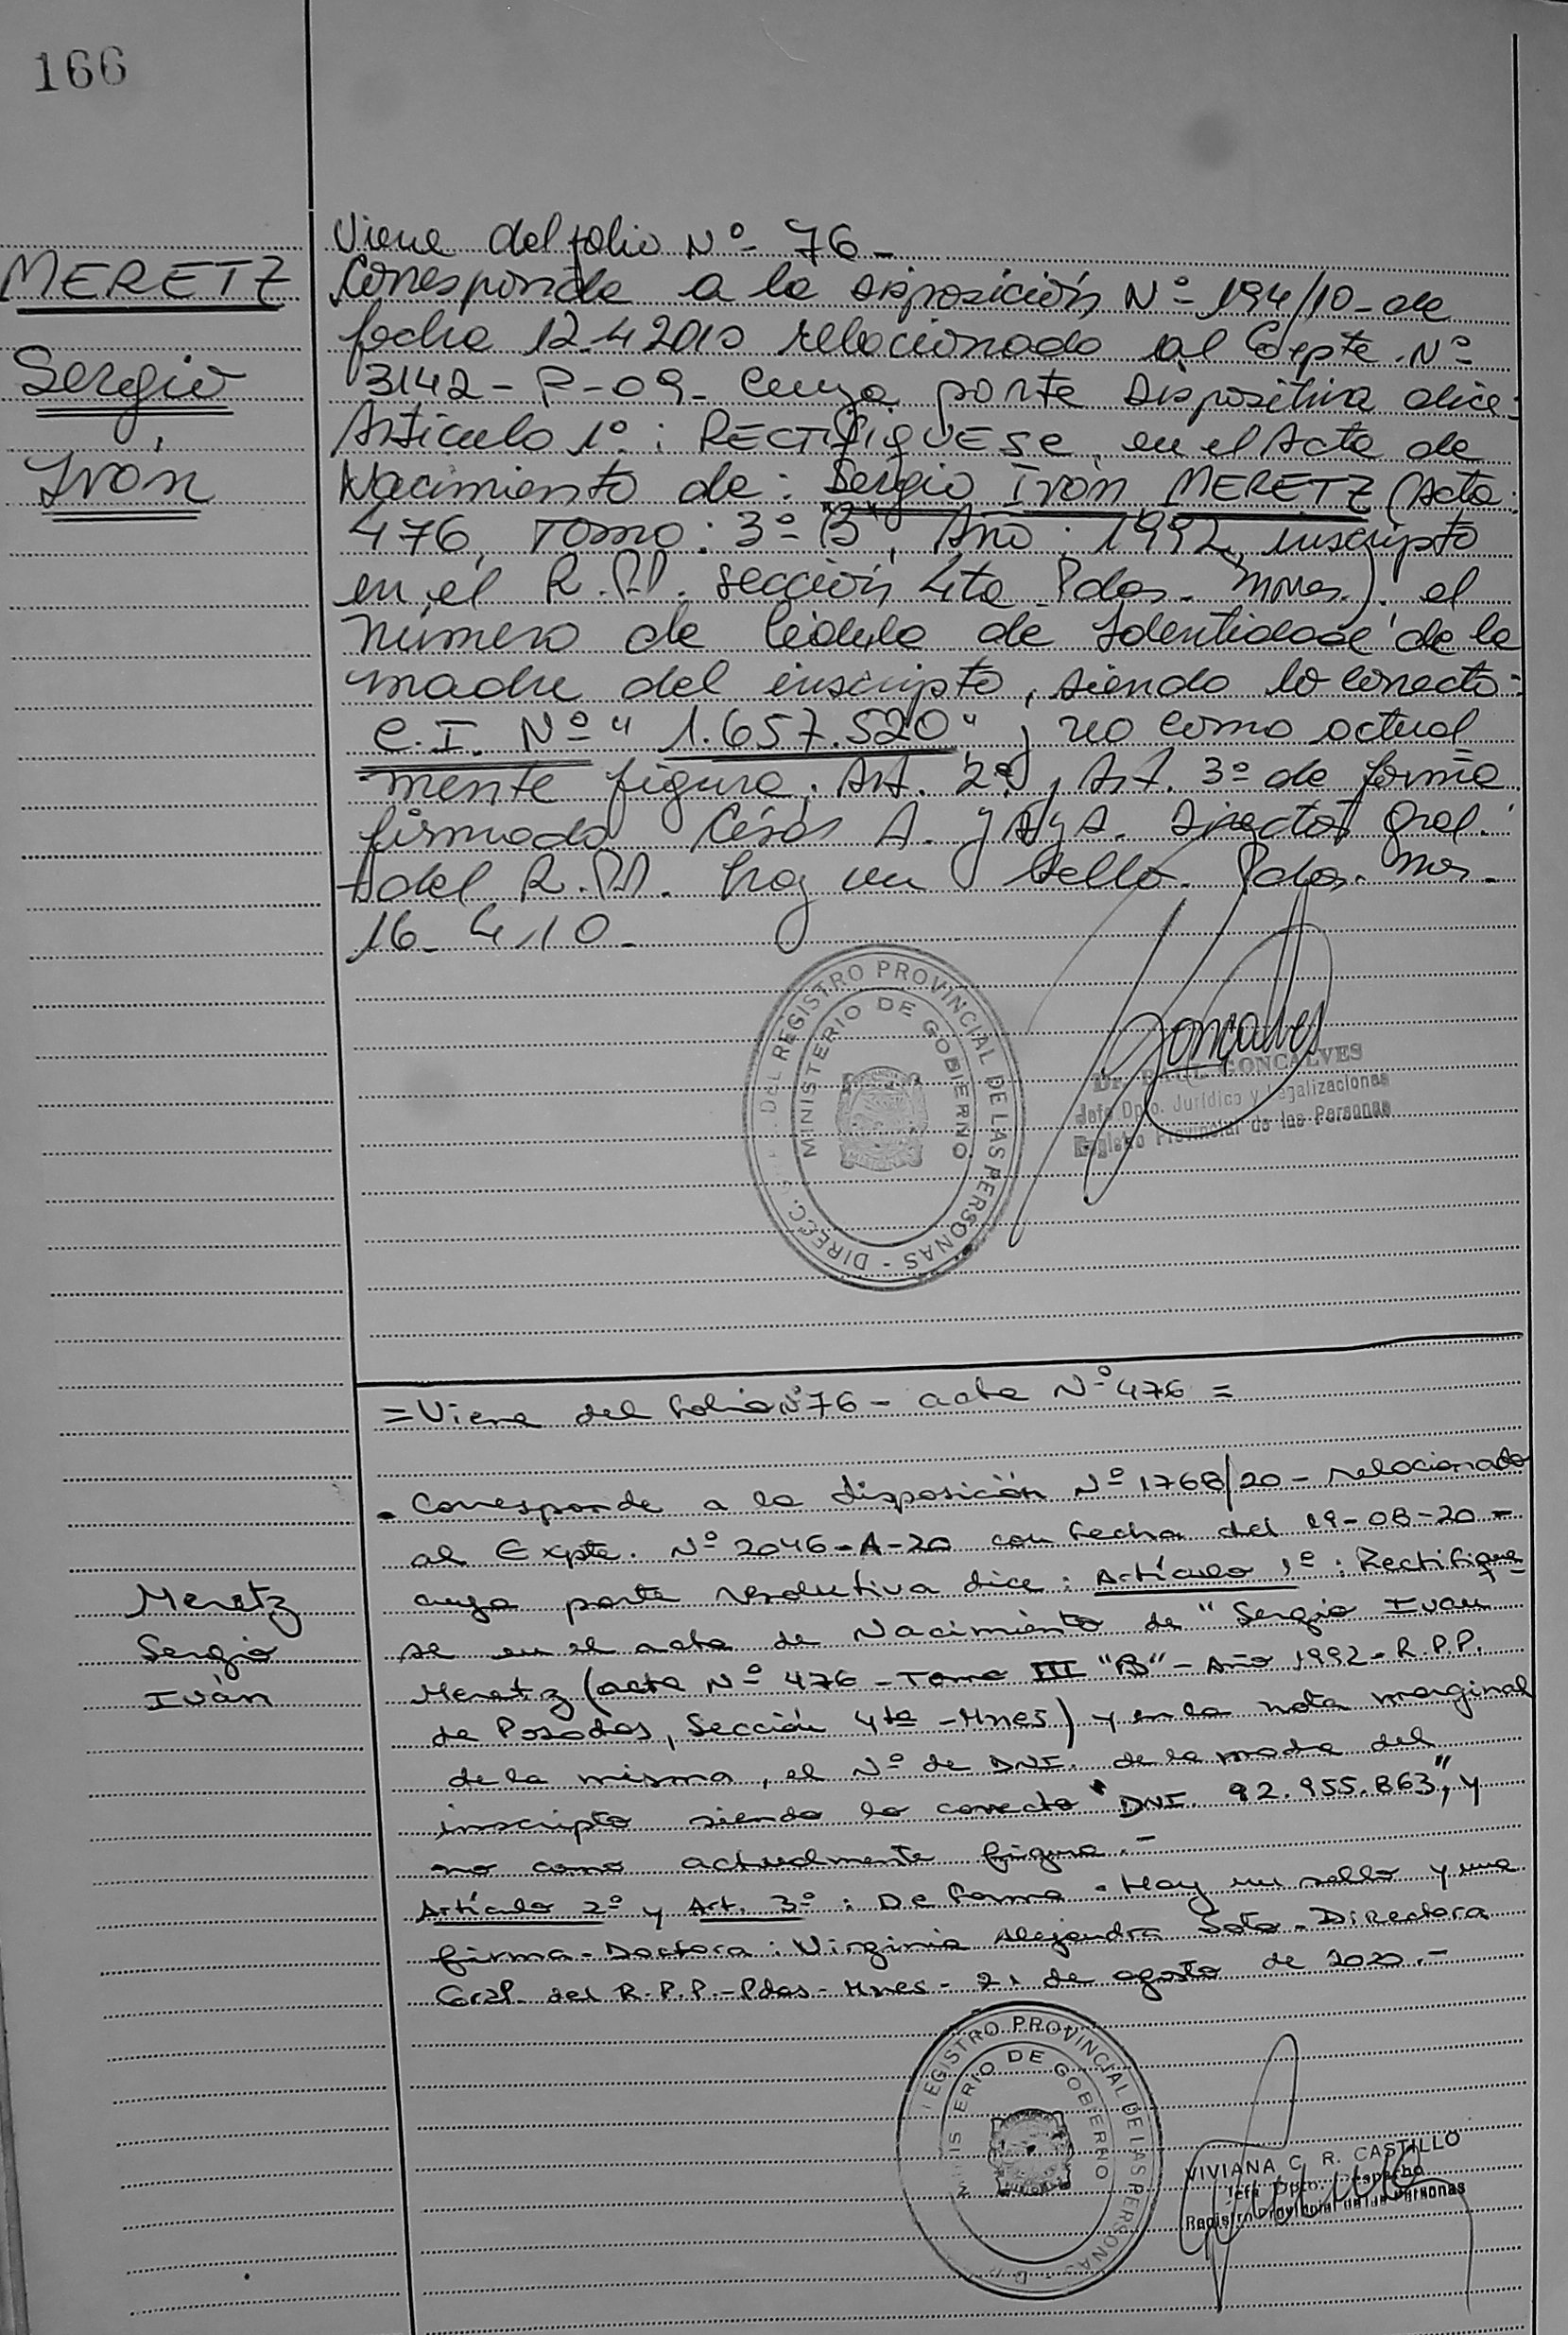 166
Viene del folio Nº 76-
MERETZ
Corresponde a la disposición Nº 194/10- de
fecha 12-4 2010 relacionado al Expte. Nº
Sergio
3142-P-09- cuya parte dispositiva dice:
Artículo 1º: RECTIFIQUESE, en el Acta de
Iván
Nacimiento de: Sergio Iván MERETZ (Acta:
476, Tomo: 3º "B", Año: 1992, inscripto
en el R.P.P. sección 4ta Pdas. Mnes.). el
número de Cédula de Identidad de la
madre del inscripto, siendo lo correcto:
C.I. Nº " 1.657.520", y no como actual=
mente figura. Art. 2º y Art. 3º de forma
firmado César A. Director Gral.
del R.P.P. hay un sello. Pdas. Mnes.
16-4-10-
DEL REGISTRO PROVINCIAL DE LAS PERSONAS - DIRECC.
MINISTERIO DE GOBIERNO
Goncalves
Dr. RAUL GONCALVES
Jefe Dpto. Jurídico y Legalizaciones
Registro Provincial de las Personas
= Viene del folio Nº 76 - acta Nº 476 =
- Corresponde a la disposición Nº 1768/20 - relacionado
al Expte. Nº 2046-A-20 con fecha del 19-08-20 -
cuya parte resolutiva dice: Artículo 1º: Rectifíque
Meretz
se en el acta de Nacimiento de "Sergio Ivan
Sergio
Meretz (acta Nº 476 - Tomo III "B" - Año 1992 - R.P.P.
Iván
de Posadas, Sección 4ta - Mnes) y en la nota marginal
de la misma, el Nº de DNI. de la madre del
inscripto siendo lo correcto "DNI. 92.955.863", y
no como actualmente figura.-
Artículo 2º y Art. 3º: De forma. Hay un sello y una
firma - Doctora: Virginia Alejandra Soto - Directora
Gral. del R.P.P. - Pdas - Mnes - 21 de agosto de 2020.-
EGISTRO PROVINCIAL DE LAS PERSONAS
MINISTERIO DE GOBIERNO
VIVIANA C. R. CASTILLO
Jefa Dpto. Despacho
Registro Provincial de las Personas